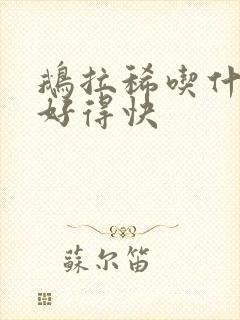 鵝拉稀喫什
好得快
蘇尔笛